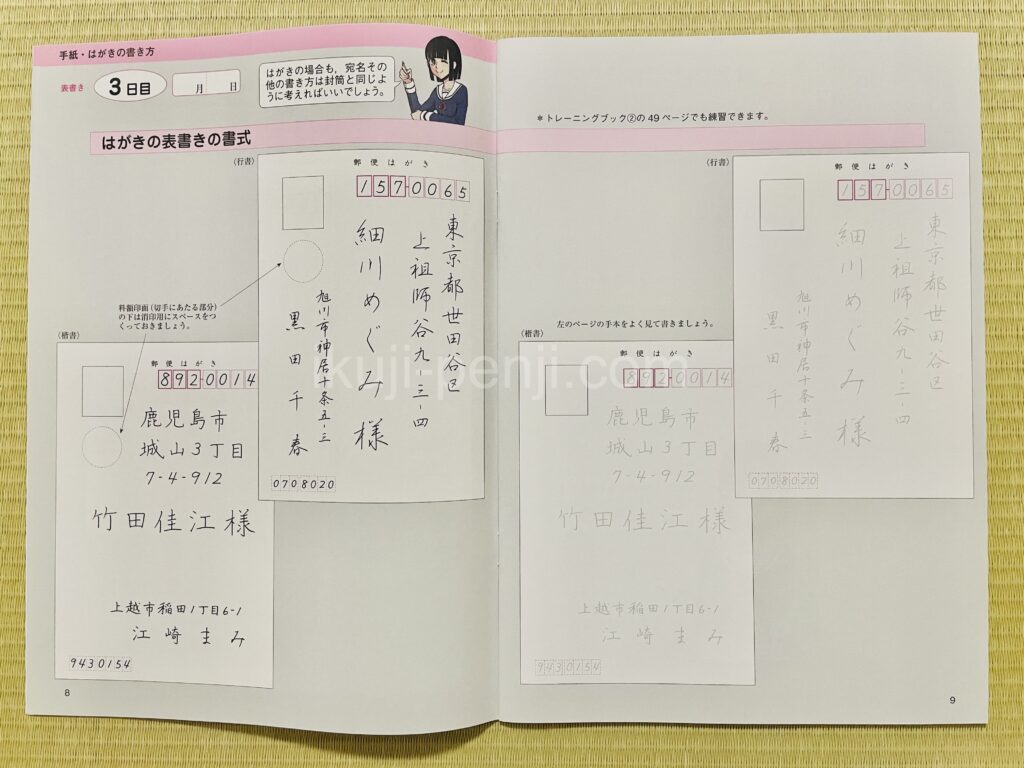 手紙・はがきの書き方
表書き
3日目
月 日
はがきの場合も，宛名その
他の書き方は封筒と同じよ
うに考えればいいでしょう。
はがきの表書きの書式
（行書）
郵便はがき
157-0065
東京都世田谷区
上祖師谷九-三-四
細川めぐみ様
旭川市神居十条五-三
黒田千春
0708020
料額印面（切手にあたる部分）
の下は消印用にスペースをつ
くっておきましょう。
（楷書）
郵便はがき
892-0014
鹿児島市
城山3丁目
7-4-912
竹田佳江様
上越市稲田1丁目6-1
江崎まみ
9430154
8
＊トレーニングブック②の49ページでも練習できます。
（行書）
郵便はがき
157-0065
東京都世田谷区
上祖師谷九-三-四
細川めぐみ様
旭川市神居十条五-三
黒田千春
0708020
左のページの手本をよく見て書きましょう。
（楷書）
郵便はがき
892-0014
鹿児島市
城山3丁目
7-4-912
竹田佳江様
上越市稲田1丁目6-1
江崎まみ
9430154
9
ikuji-penji.com